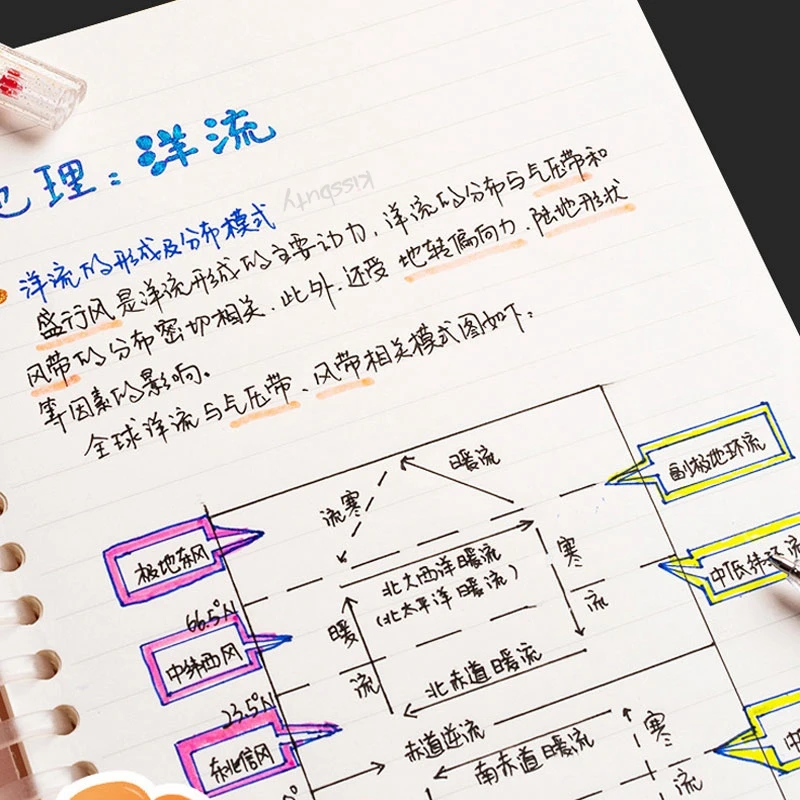 理：洋流
kissbuty
洋流的形成及分布模式
盛行风是洋流形成的主要动力，洋流的分布与气压带和
风带的分布密切相关．此外．还受地转偏向力．陆地形状
等因素的影响。
全球洋流与气压带、风带相关模式图如下：
暖流
副极地环流
流寒
极地东风
北大西洋暖流
(北太平洋暖流)
寒流
中低纬环流
66.5°N
暖流
中纬西风
北赤道暖流
23.5°N
赤道逆流
南赤道暖流
寒流
东北信风
中
0°